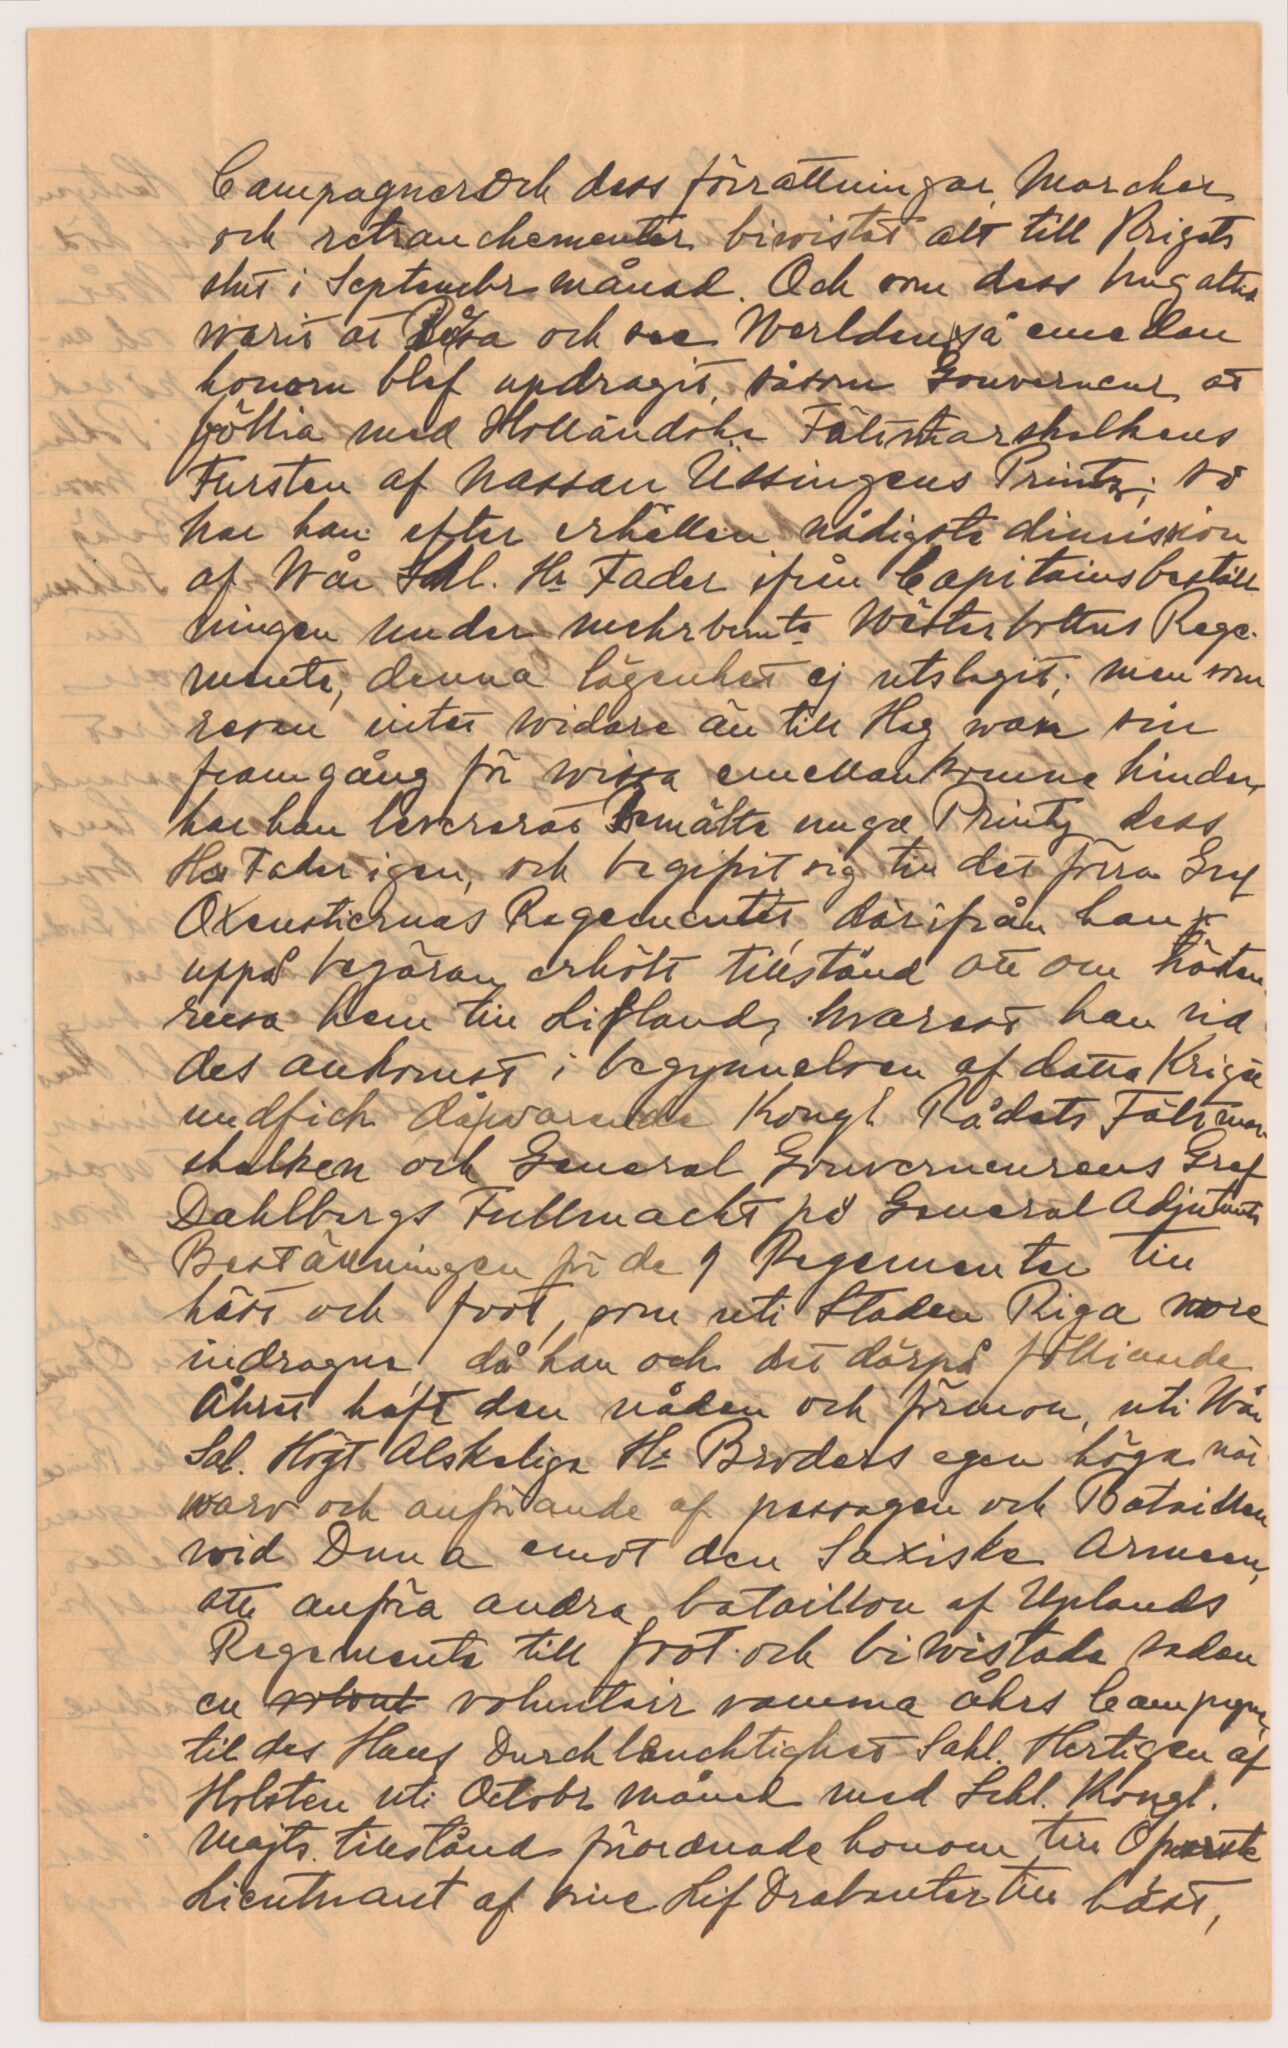 Campagner och dess förrättningar, Marcher
och retranchementer biwistat alt till Krigets
slut i Septembr månad. Och som dess hug altid
warit at Resa och see Werlden, så emedan
honom blef updragit, såsom Gouverneur at
föllia med Holländske Fältmarskalkens
Fursten af Nassau Ussingens Printz; så
har han efter erhållen nådigste dimission
af Wår Sahl. Hr Fader ifrån Capitainsbeställ
ningen under mehrbemte Wästerbottns Rege-
mente, denna lägenhet ej utslagit; men som
resan intet widare än till Hag wan sin
framgång för wissa emellankomne hinder,
har han levererat Bemälte unga Printz dess
Hr Fader igen, och begifvit sig till det förra Gref
Oxenstiernas Regementet, därifrån han
uppå begäran erhölt tillstånd att om hösten
reesa hem till Lifland, hwarest han vid
des ankomst i begynnelsen af detta Kriget
undfick dåwarande Kongl Rådets Fältmar
skalken och General Gouverneurens Gref
Dahlbergs Fullmacht på General Adjutants
Beställningen för de 9 Regementer till
häst och foot, som uti Staden Riga wore
indragne då han och det därpå følliande
Åhret haft den nåden och förmon, uti Wår
Sal. Högt Älskelige Hr Broders egen höga när
warv och anförande af passagen och Bataillen
wid Duna emot den Saxiske Armeen,
att anföra andra bataillon af Uplands
Regemente till foot och biwistade sedan
en volunteir samma åhrs Campagne,
til des Hans Durchleuchtighet Sahl. Hertigen af
Holsten uti Octobr månad med Sahl. Kongl.
Majts. tillstånd förordnade honom till Öfwerste
Lieutnant af sine Lif Drabanter till häst,